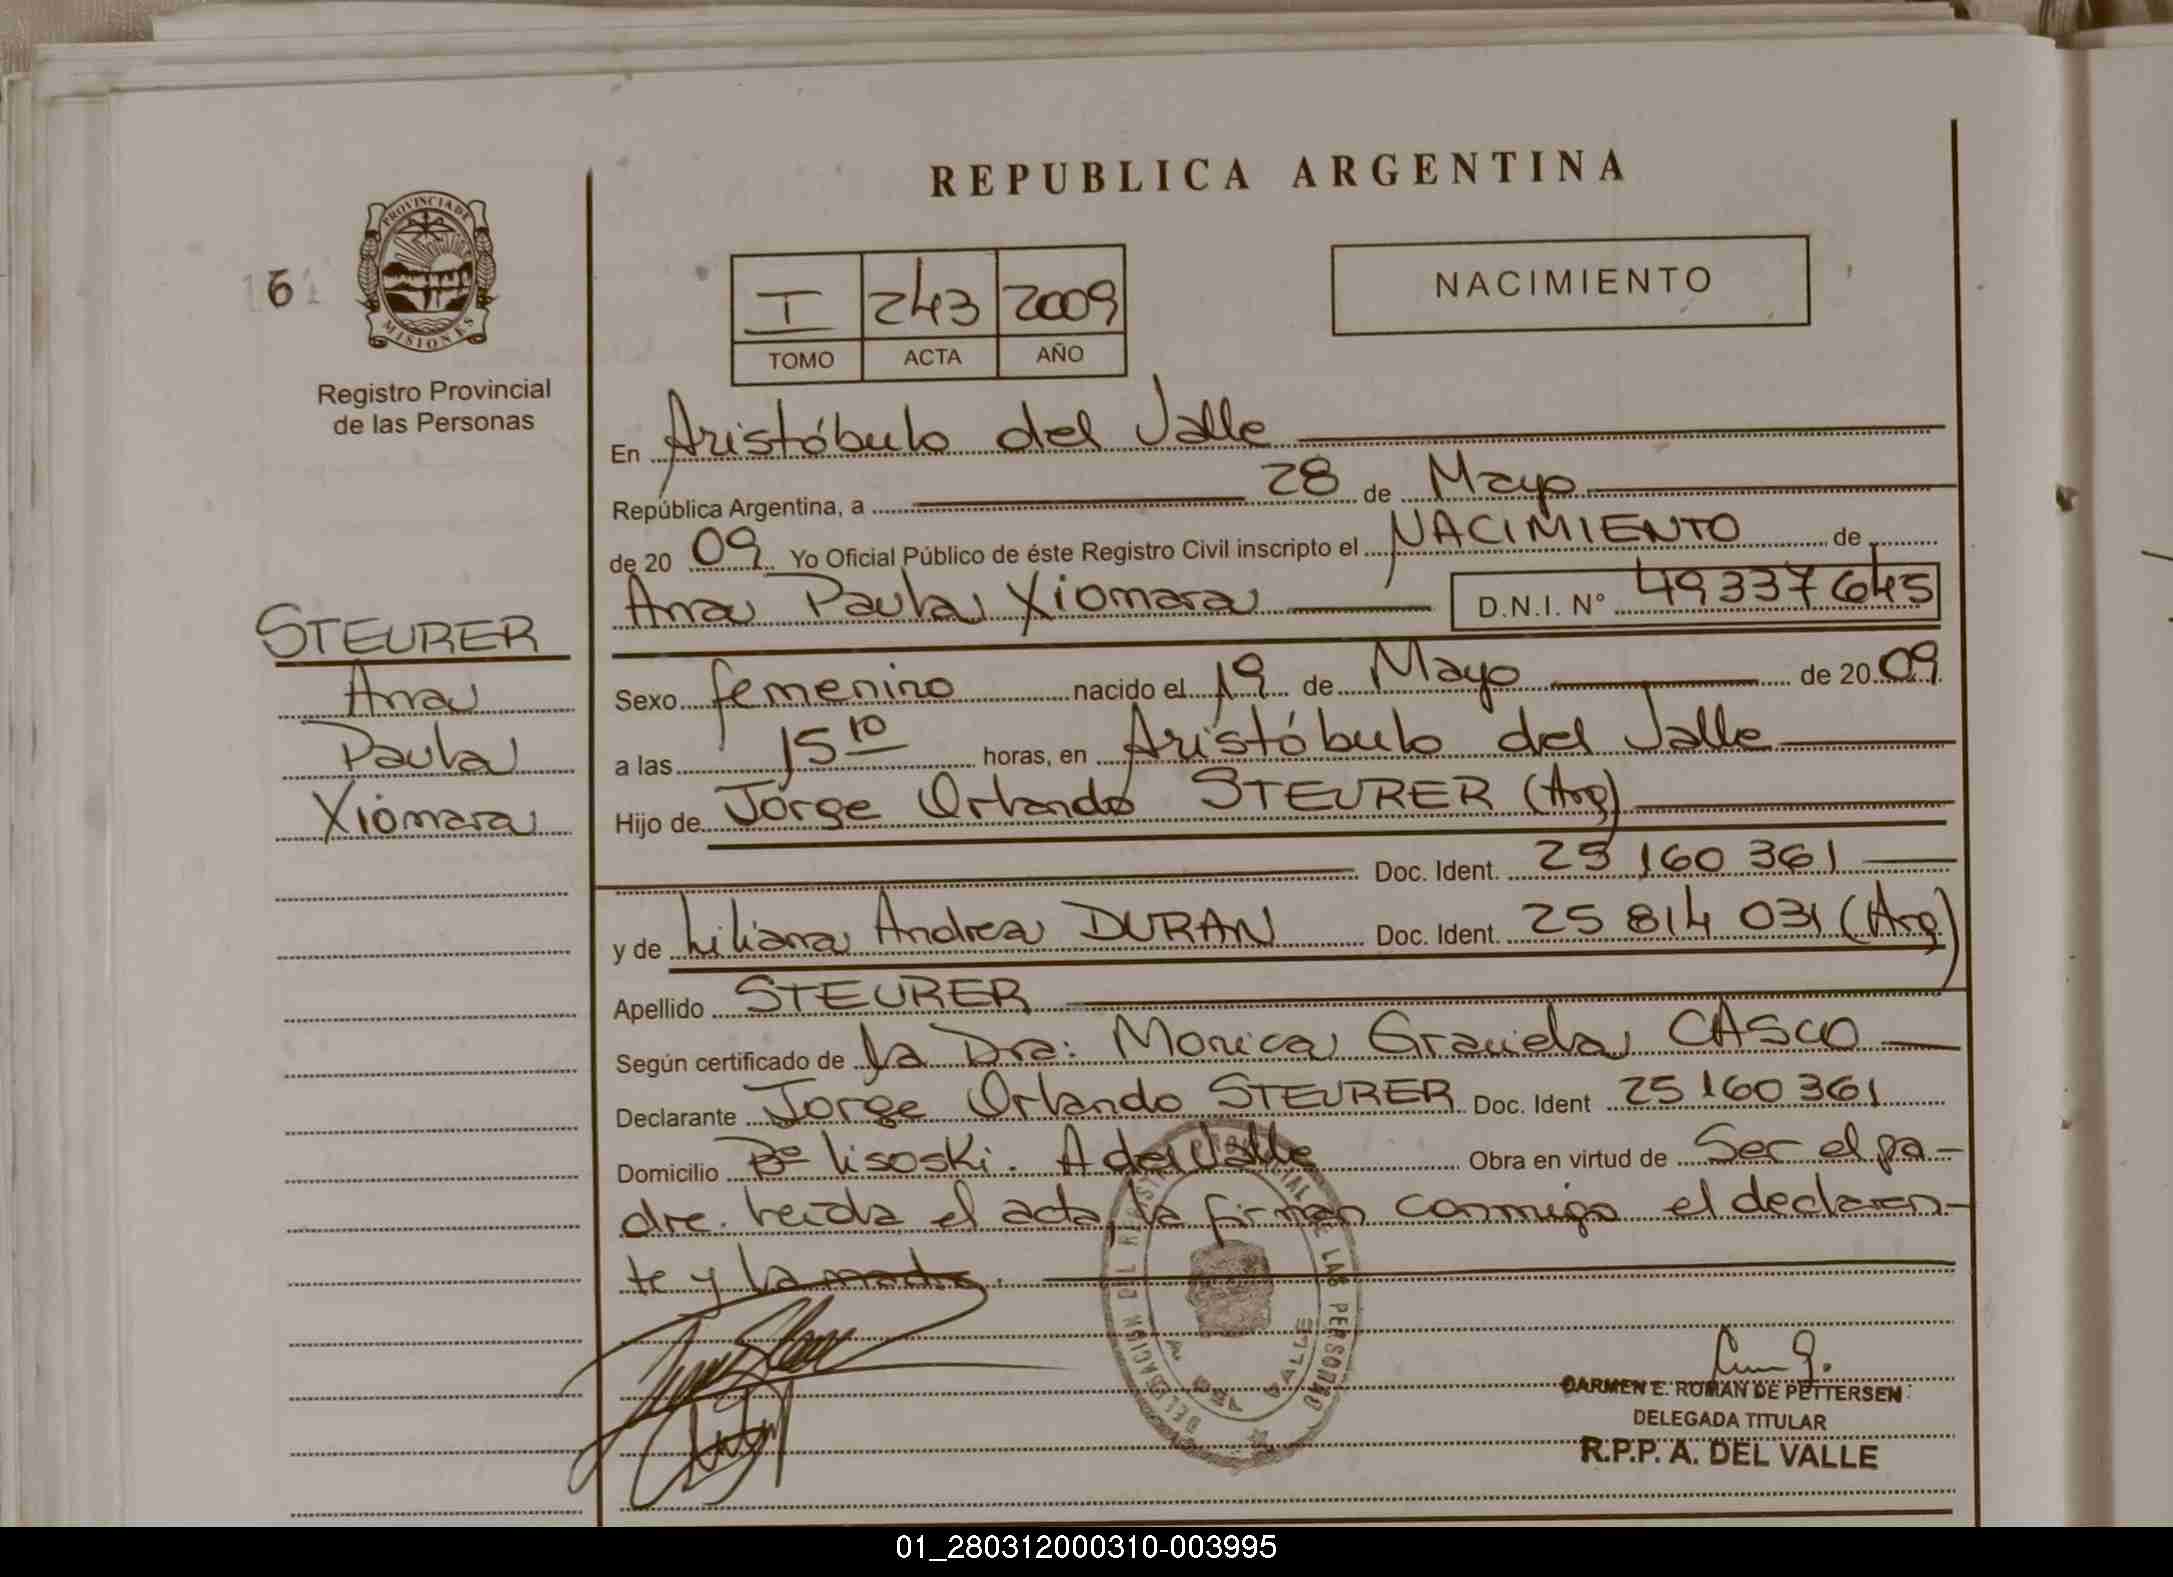 REPUBLICA ARGENTINA
PROVINCIA DE
MISIONES
Registro Provincial
de las Personas
6
I 243 2009
TOMO ACTA AÑO
NACIMIENTO
En Aristóbulo del Valle
República Argentina, a 28 de Mayo
de 20 09 Yo Oficial Público de éste Registro Civil inscripto el NACIMIENTO de
Ana Paula Xiomara D.N.I. N° 49337645
STEURER
Ana
Paula
Xiomara
Sexo femenino nacido el 19 de Mayo de 20 09
a las 15 10 horas, en Aristóbulo del Valle
Hijo de Jorge Orlando STEURER (Arg)
Doc. Ident. 25 160 361
y de Liliana Andrea DURAN Doc. Ident. 25 814 031 (Arg)
Apellido STEURER
Según certificado de la Dra: Monica Graciela CASCO
Declarante Jorge Orlando STEURER Doc. Ident 25 160 361
Domicilio B° Lisoski. A del Valle Obra en virtud de Ser el pa-
dre. Leida el acta, la firman conmigo el declaran-
te y la madre.
DELEGACION DEL REGISTRO PROVINCIAL DE LAS PERSONAS
A. DEL VALLE
CARMEN E. ROMAN DE PETTERSEN
DELEGADA TITULAR
R.P.P. A. DEL VALLE
01_280312000310-003995